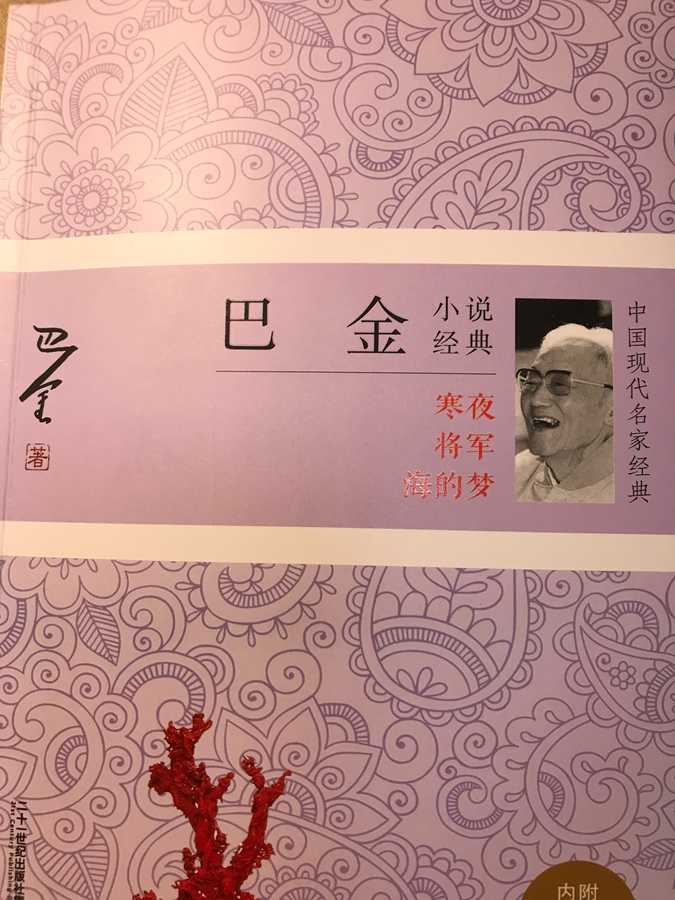 巴金
小说
经典
寒夜
将军
海的梦
中国现代名家经典
巴金
著
二十一世纪出版社
21st Century Publishing
内附